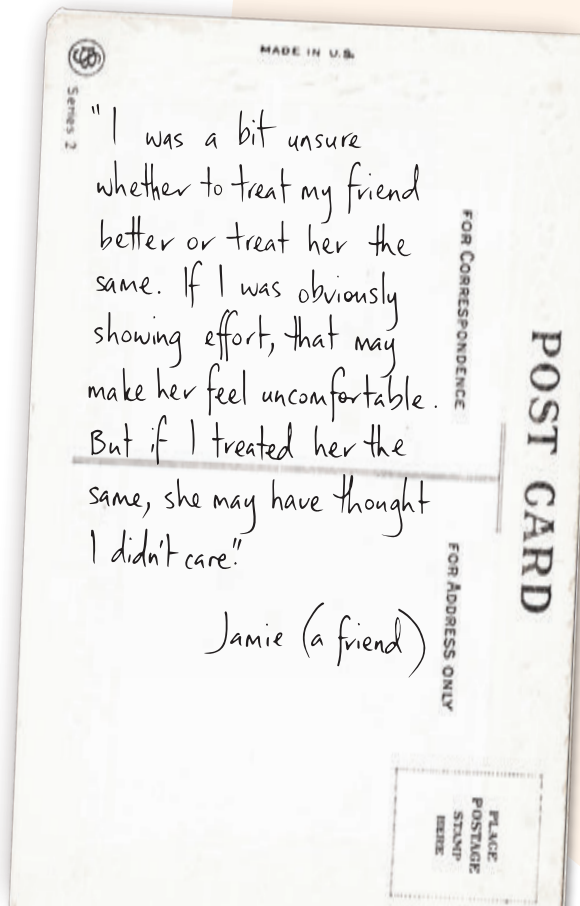 MADE IN U.S.
Series 2
"I was a bit unsure
whether to treat my friend
better or treat her the
same. If I was obviously
showing effort, that may
make her feel uncomfortable.
But if I treated her the
same, she may have thought
I didn't care."
Jamie (a friend)
FOR CORRESPONDENCE
POST CARD
FOR ADDRESS ONLY
PLACE
POSTAGE
STAMP
HERE